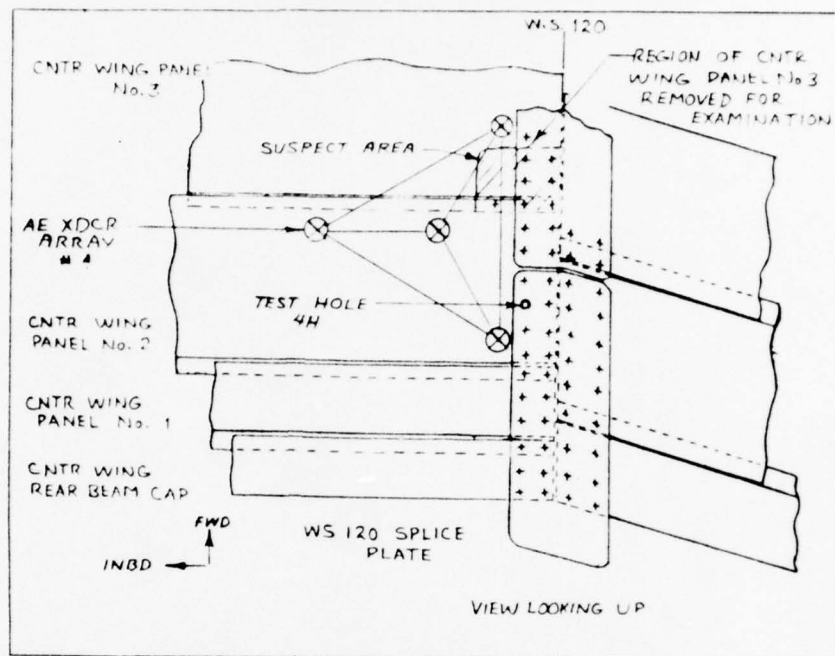 W.S. 120
CNTR WING PANEL
No. 3
REGION OF CNTR
WING PANEL No 3
REMOVED FOR
EXAMINATION
SUSPECT AREA
AE XDCR
ARRAY
TEST HOLE
4H
CNTR WING
PANEL No. 2
CNTR WING
PANEL No. 1
CNTR WING
REAR BEAM CAP
FWD
INBD
WS 120 SPLICE
PLATE
VIEW LOOKING UP